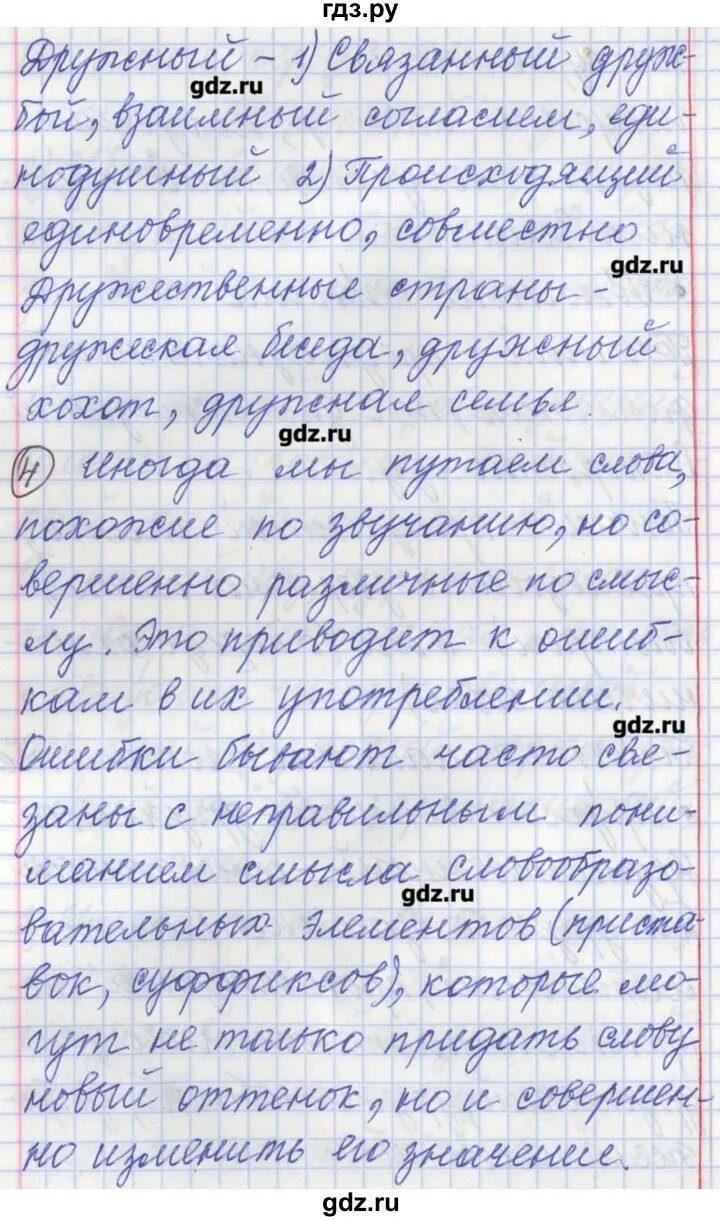 гдз.ру
Дружный – 1) Связанный друж-
gdz.ru
бой, взаимный согласием, еди-
нодушный 2) Происходящий
единовременно, совместно
gdz.ru
Дружественные страны –
дружеская беседа, дружный
хохот, дружная семья.
gdz.ru
4 Иногда мы путаем слова,
похожие по звучанию, но со-
вершенно различные по смыс-
лу. Это приводит к ошиб-
кам в их употреблении.
gdz.ru
Ошибки бывают часто свя-
заны с неправильным пони-
манием смысла словообразо-
gdz.ru
вательных элементов (приста-
вок, суффиксов), которые мо-
гут не только придать слову
новый оттенок, но и совершен-
но изменить его значение.
gdz.ru